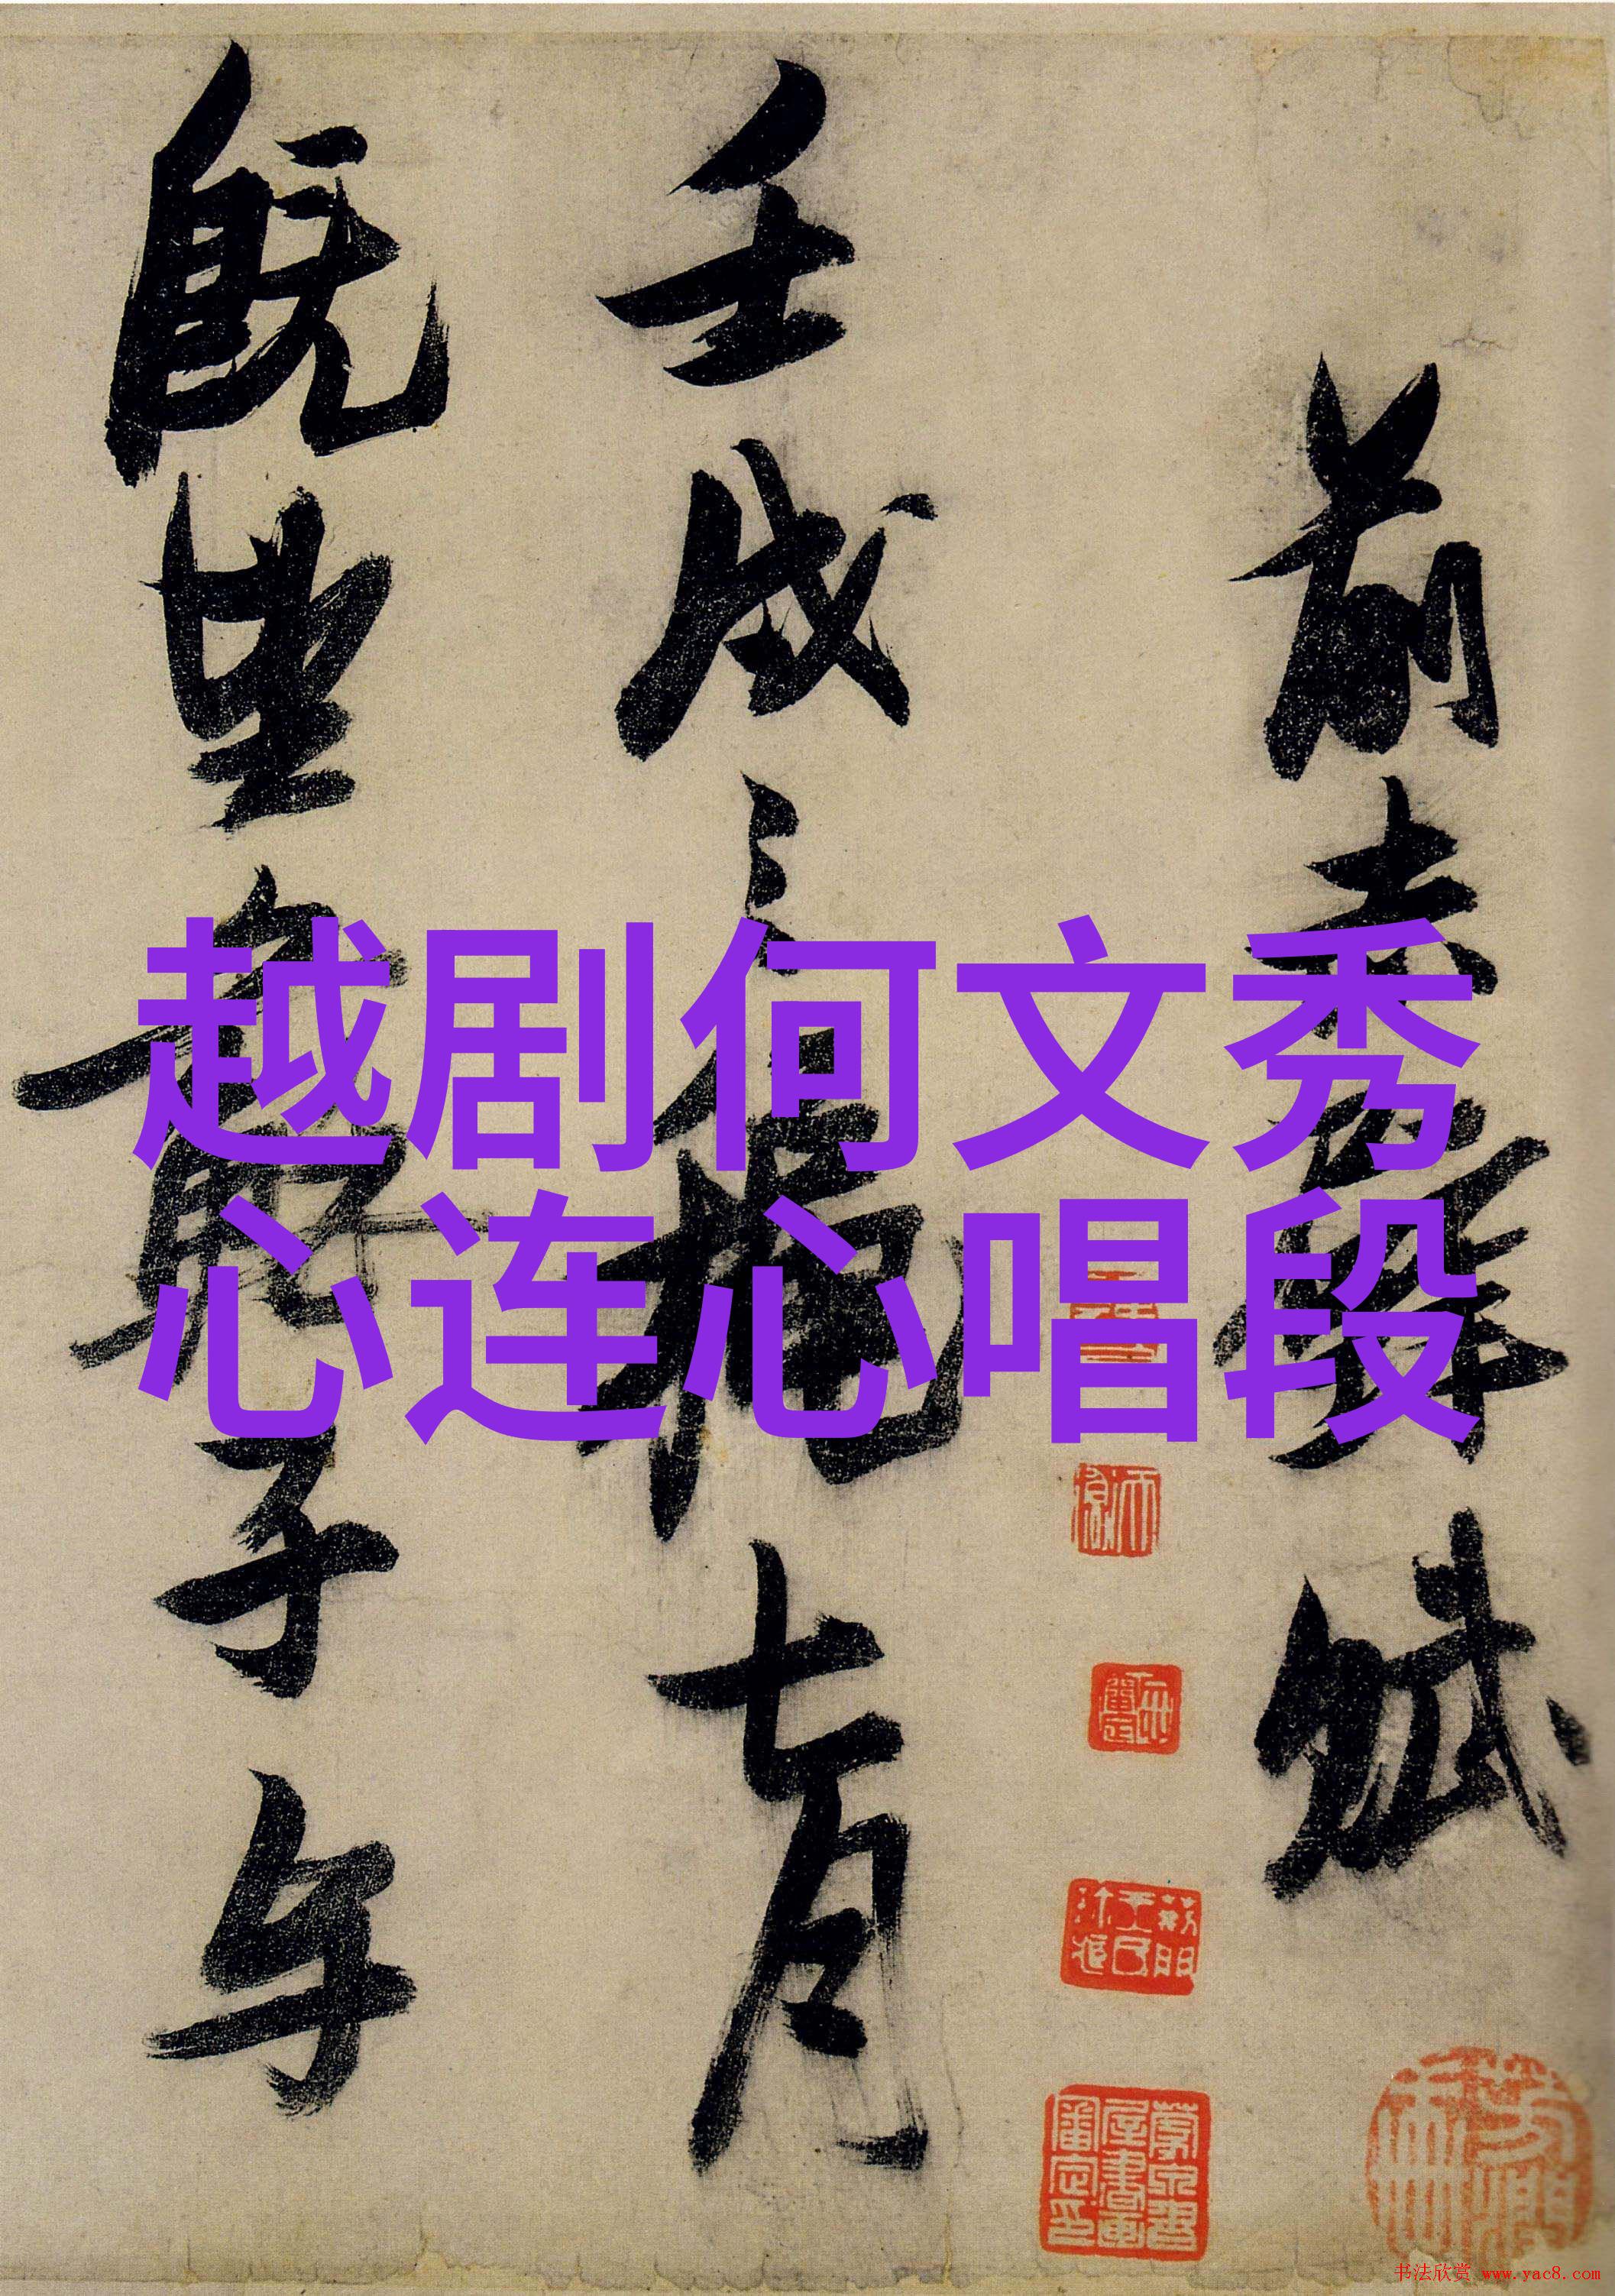 前赤壁賦
壬戌之秋七月
既望蘇子与
越剧何文秀
心连心唱段
书法欣赏 www.yac8.com